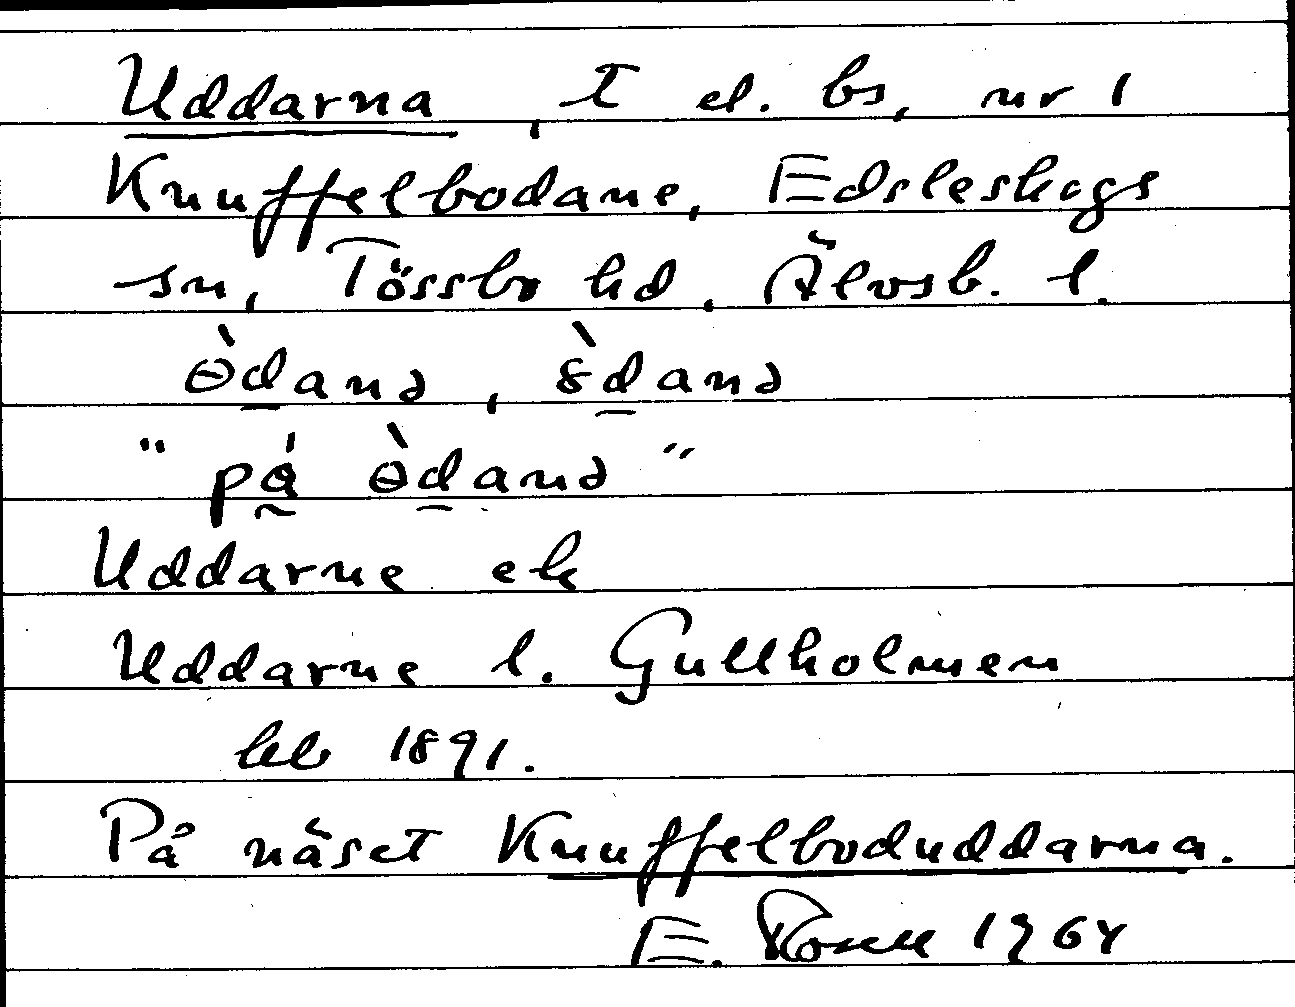 Uddarna, t el. bs, nr 1
Knuffelbodane, Edsleskogs
sn, Tössbo hd, Älvsb. l.
ɵ̀danə, ὸ̀danə
"på ɵ̀danə"
Uddarne ek
Uddarne l. Gullholmen
hlb 1891.
På näset Knuffelboduddarna.
E. 1964